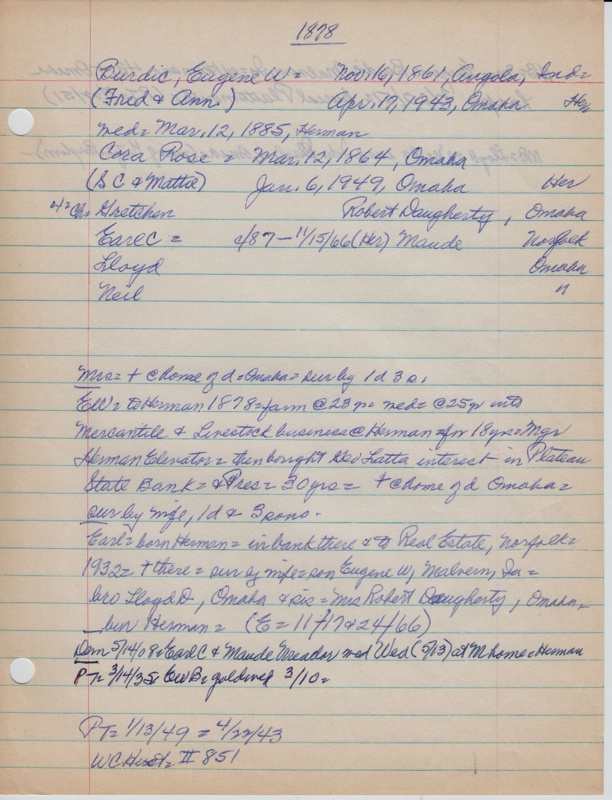 1878
Burdic, Eugene W = Nov. 16, 1861, Angola, Ind =
(Fred & Ann.) Apr. 17, 1943, Omaha Her
med = Mar. 12, 1885, Herman
Cora Rose = Mar. 12, 1864, Omaha
(S C & Mattie) Jan. 6, 1949, Omaha Her
4 = Ch = Gretchen Robert Daugherty, Omaha
Earl C = c/87 – 11/15/66 (Her) Maude Norfolk
Lloyd Omaha
Neil "
Mrs = + @ home of d = Omaha = sur by 1 d 3 s.
EW = to Herman 1878 = farm @ 23 yr = med = @ 25 yr into
Mercantile & Livestock business @ Herman = for 18 yrs = Mgr
Herman Elevator = then bought Geo Latta interest in Plateau
State Bank = & Pres = 30 yrs = + @ home of d Omaha =
sur by wife, 1 d & 3 sons.
Earl = born Herman = in bank there & to Real Estate, Norfolk =
1932 = + there = sur by wife = son Eugene W, Malvern, Ia =
bro Lloyd D, Omaha & sis = Mrs Robert Daugherty, Omaha =
bur Herman = (E = 11/17 & 24/66)
Dem 5/14/08 = Earl C & Maude Meador med Wed (5/13) at M home = Herman
PT = 3/14/35 = EWB = gold wed 3/10 =
PT = 1/13/49 = 4/22/43
WC Hist = II 851